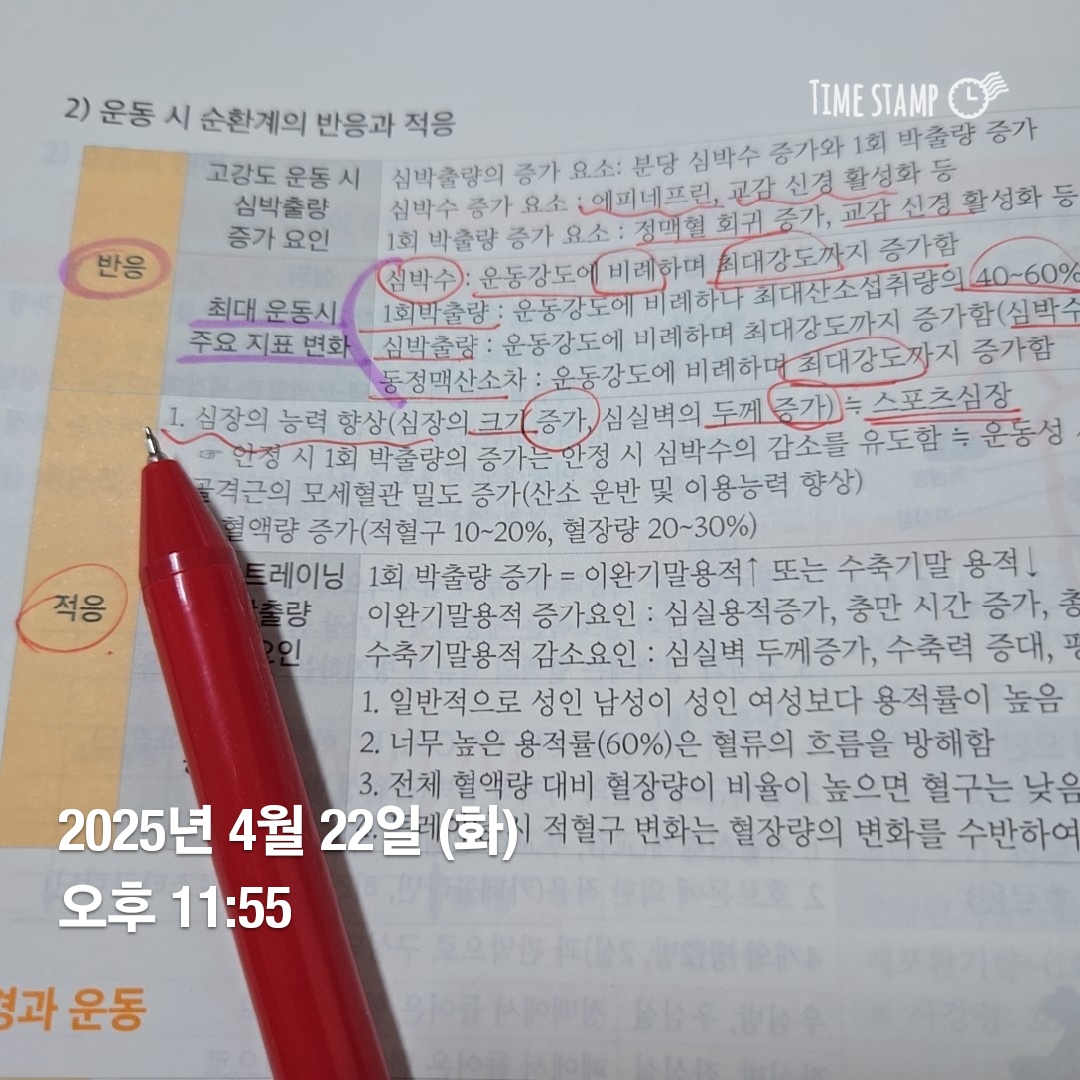 TIME STAMP
2) 운동 시 순환계의 반응과 적응
반응
고강도 운동 시
심박출량
증가 요인
심박출량의 증가 요소: 분당 심박수 증가와 1회 박출량 증가
심박수 증가 요소 : 에피네프린, 교감 신경 활성화 등
1회 박출량 증가 요소 : 정맥혈 회귀 증가, 교감 신경 활성화 등
최대 운동시
주요 지표 변화
심박수 : 운동강도에 비례하며 최대강도까지 증가함
1회박출량 : 운동강도에 비례하나 최대산소섭취량의 40~60%
심박출량 : 운동강도에 비례하며 최대강도까지 증가함(심박수
동정맥산소차 : 운동강도에 비례하며 최대강도까지 증가함
적응
1. 심장의 능력 향상(심장의 크기 증가, 심실벽의 두께 증가) ≒ 스포츠심장
☞ 안정 시 1회 박출량의 증가는 안정 시 심박수의 감소를 유도함 ≒ 운동성
골격근의 모세혈관 밀도 증가(산소 운반 및 이용능력 향상)
혈액량 증가(적혈구 10~20%, 혈장량 20~30%)
트레이닝
박출량
요인
1회 박출량 증가 = 이완기말용적↑ 또는 수축기말 용적↓
이완기말용적 증가요인 : 심실용적증가, 충만 시간 증가, 총
수축기말용적 감소요인 : 심실벽 두께증가, 수축력 증대,
1. 일반적으로 성인 남성이 성인 여성보다 용적률이 높음
2. 너무 높은 용적률(60%)은 혈류의 흐름을 방해함
3. 전체 혈액량 대비 혈장량이 비율이 높으면 혈구는 낮음
시 적혈구 변화는 혈장량의 변화를 수반하여
2025년 4월 22일 (화)
오후 11:55
경과 운동